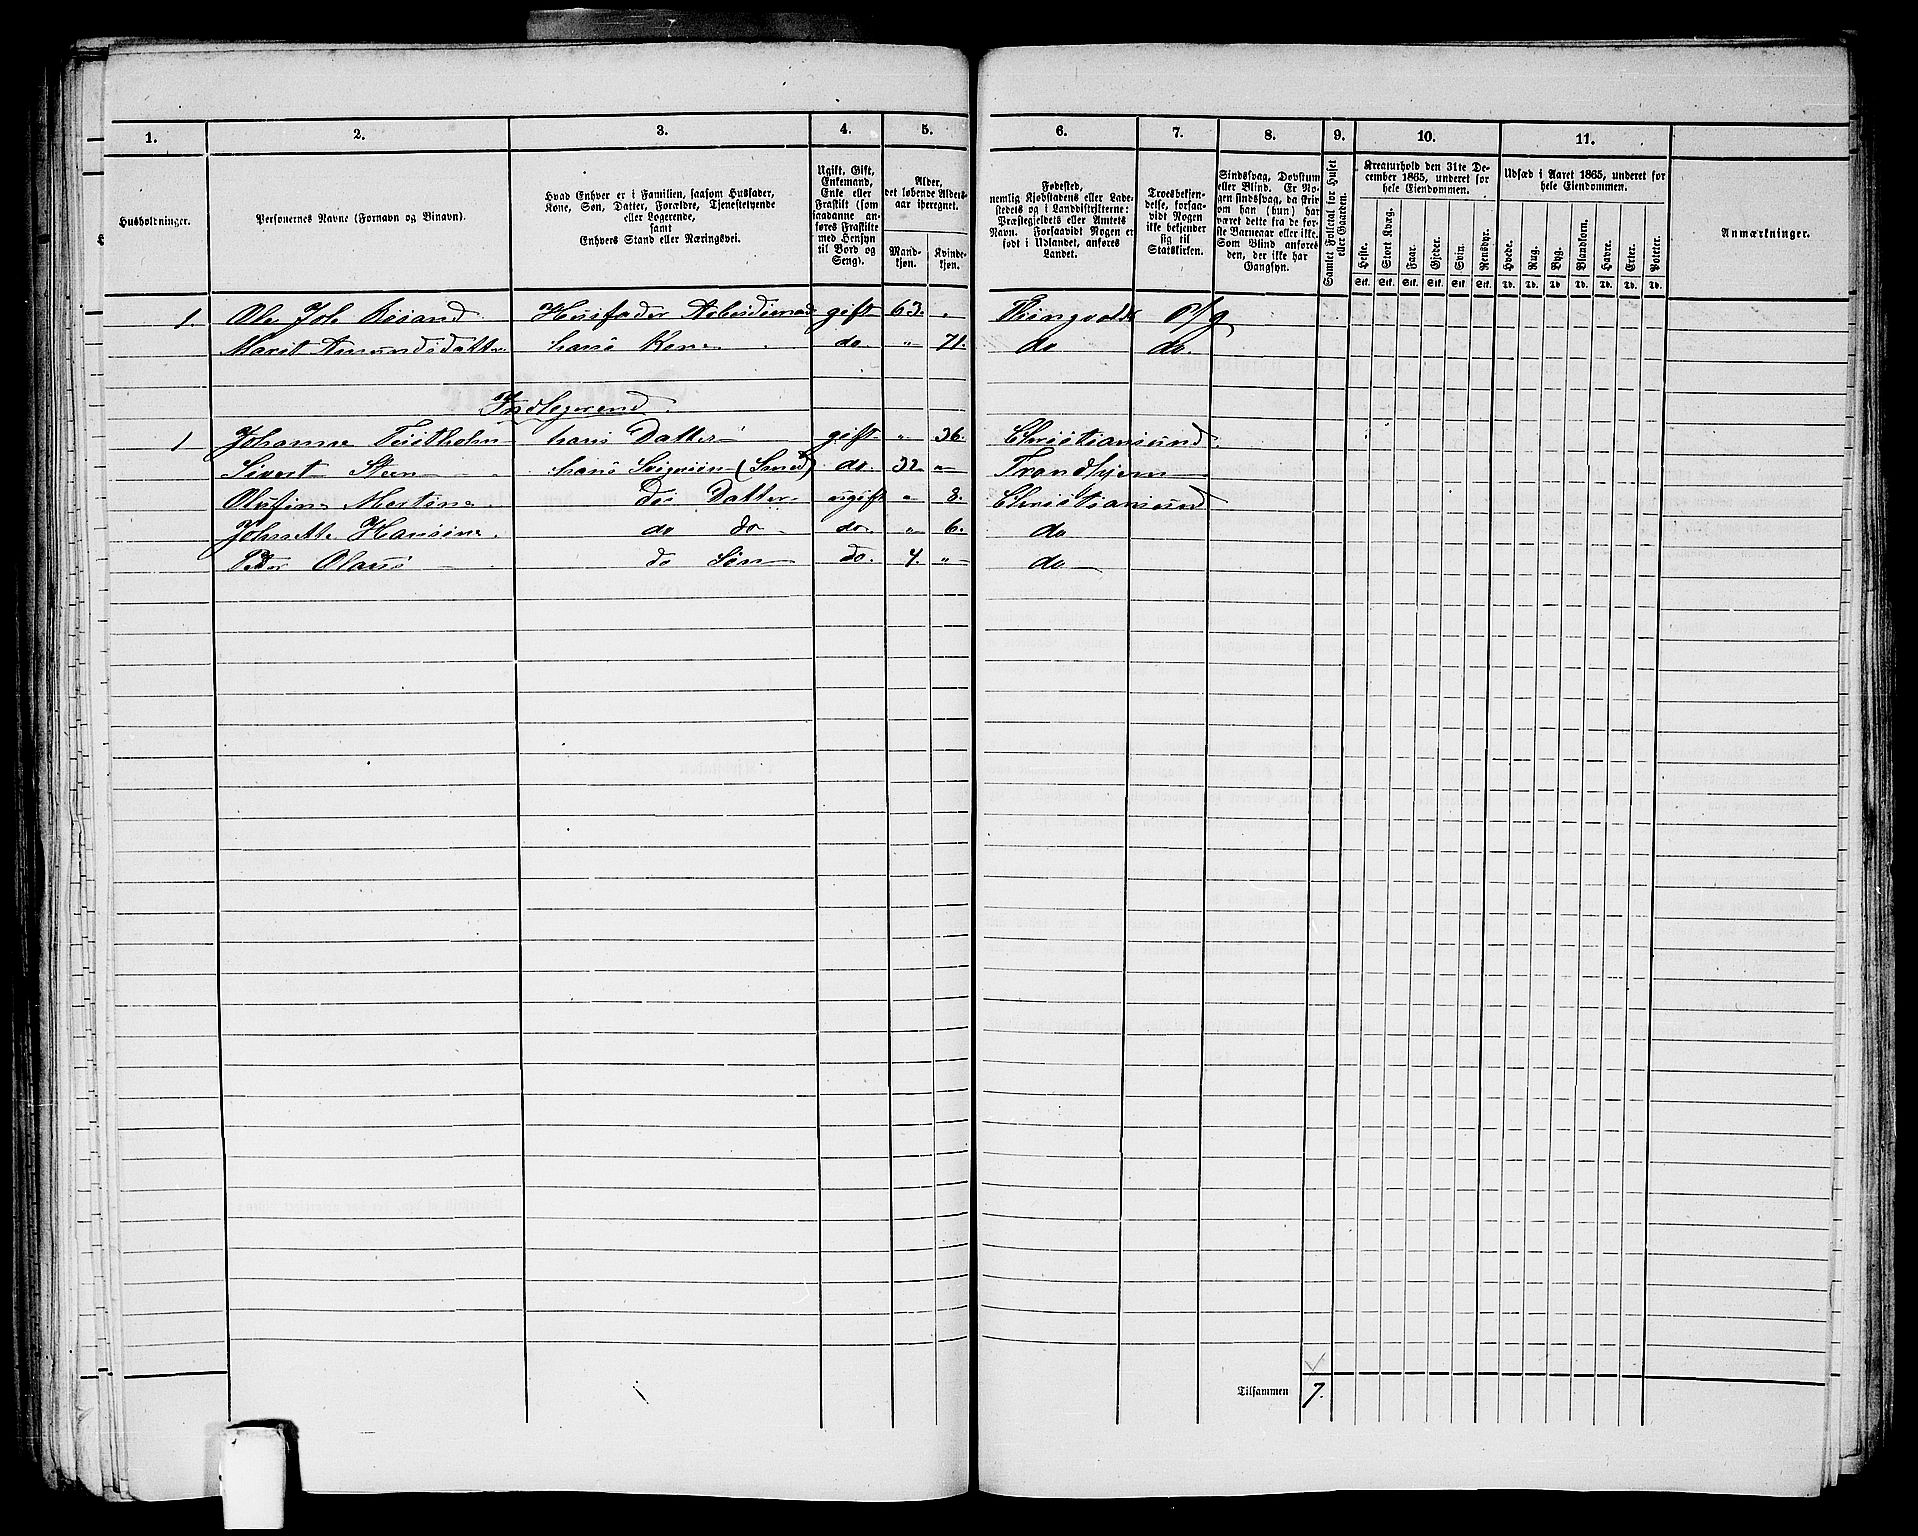 1. 2. 3. 4. 5. 6. 7. 8. 9. 10. 11.
Husholtninger.
Personernes Navne (Fornavn og Binavn).
Hvad Enhver er i Familien, saasom Husfader,
Kone, Søn, Datter, Forældre, Tjenestetyende
eller Logerende,
samt
Enhvers Stand eller Næringsvei.
Ugift, Gift,
Enkemand,
Enke eller
Fraskilt (som
saadanne an-
føres Fraskilte
med Hensyn
til Bord og
Seng).
Alder,
det løbende Alders-
aar iberegnet.
Mand-
kjøn.
Kvinde-
kjøn.
Fødested,
nemlig Kjøbstadens eller Lade-
stedets og i Landdistrikterne:
Præstegjeldets eller Amtets
Navn. Forsaavidt Nogen er
født i Udlandet, anføres
Landet.
Troesbekjen-
delse, forsaa-
vidt Nogen
ikke bekjender
sig til
Statskirken.
Sindssvag, Døvstum
eller Blind. Er No-
gen sindssvag, da skriv
om han (hun) har
været dette fra de før-
ste Barneaar eller ikke.
Som Blind anføres
den, der ikke har
Gangsyn.
Samlet Folketal for Huset
eller Gaarden.
Kreaturhold den 31te De-
cember 1865, underet for
hele Eiendommen.
Heste. Stort Kvæg. Faar. Gjeder. Svin. Rensdyr.
Stk. Stk. Stk. Stk. Stk. Stk.
Udsæd i Aaret 1865, underet for
hele Eiendommen.
Hvede. Rug. Byg. Blandkorn. Havre. Erter. Poteter.
Td. Td. Td. Td. Td. Td. Td.
Anmærkninger.
1. Ole Joh Husfader gift 63. "
Marit Amundsdatter hans Kone do. " 71. do do.
Indlogerend
1 Johanne hans Datter gift " 36. Christiansund
Sivert Steen hans Svigersøn (Smed) do. 32 " Trondhjem
Olufine Martine des Datter ugift " 8. Christiansund
Johnette Hansine do do do. " 6. do
Peder Olaus do Søn do. 4. " do
Tilsammen 7.